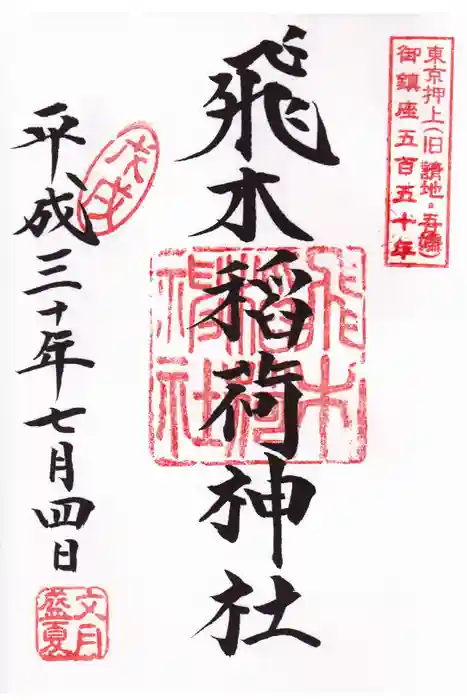 東京押上(旧 請地・吾嬬)
御鎮座五百五十年
飛木稲荷神社
飛木
稲荷
神社
平成三十年七月四日
戊戌
文月
盛夏